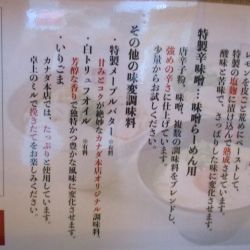 レモン
特製の塩麹に漬け込んで熟成させています。
酸味と苦味で、さっぱりした味に変化します。
特製辛味噌：味噌らーめん用
唐辛子粉、味噌、複数の調味料をブレンドし、
強めの辛さに仕上げています。
少量からお試しください。
その他の味変調味料
・特製メープルバター ※有料
甘みとコクが絶妙なカナダ本店オリジナル調味料。
・白トリュフオイル ※有料
芳醇な香りで独特かつ豊かな風味に変化させます。
・いりごま
カナダ本店では、たっぷりと使用しています。
卓上のミルで挽きたてをお楽しみください。